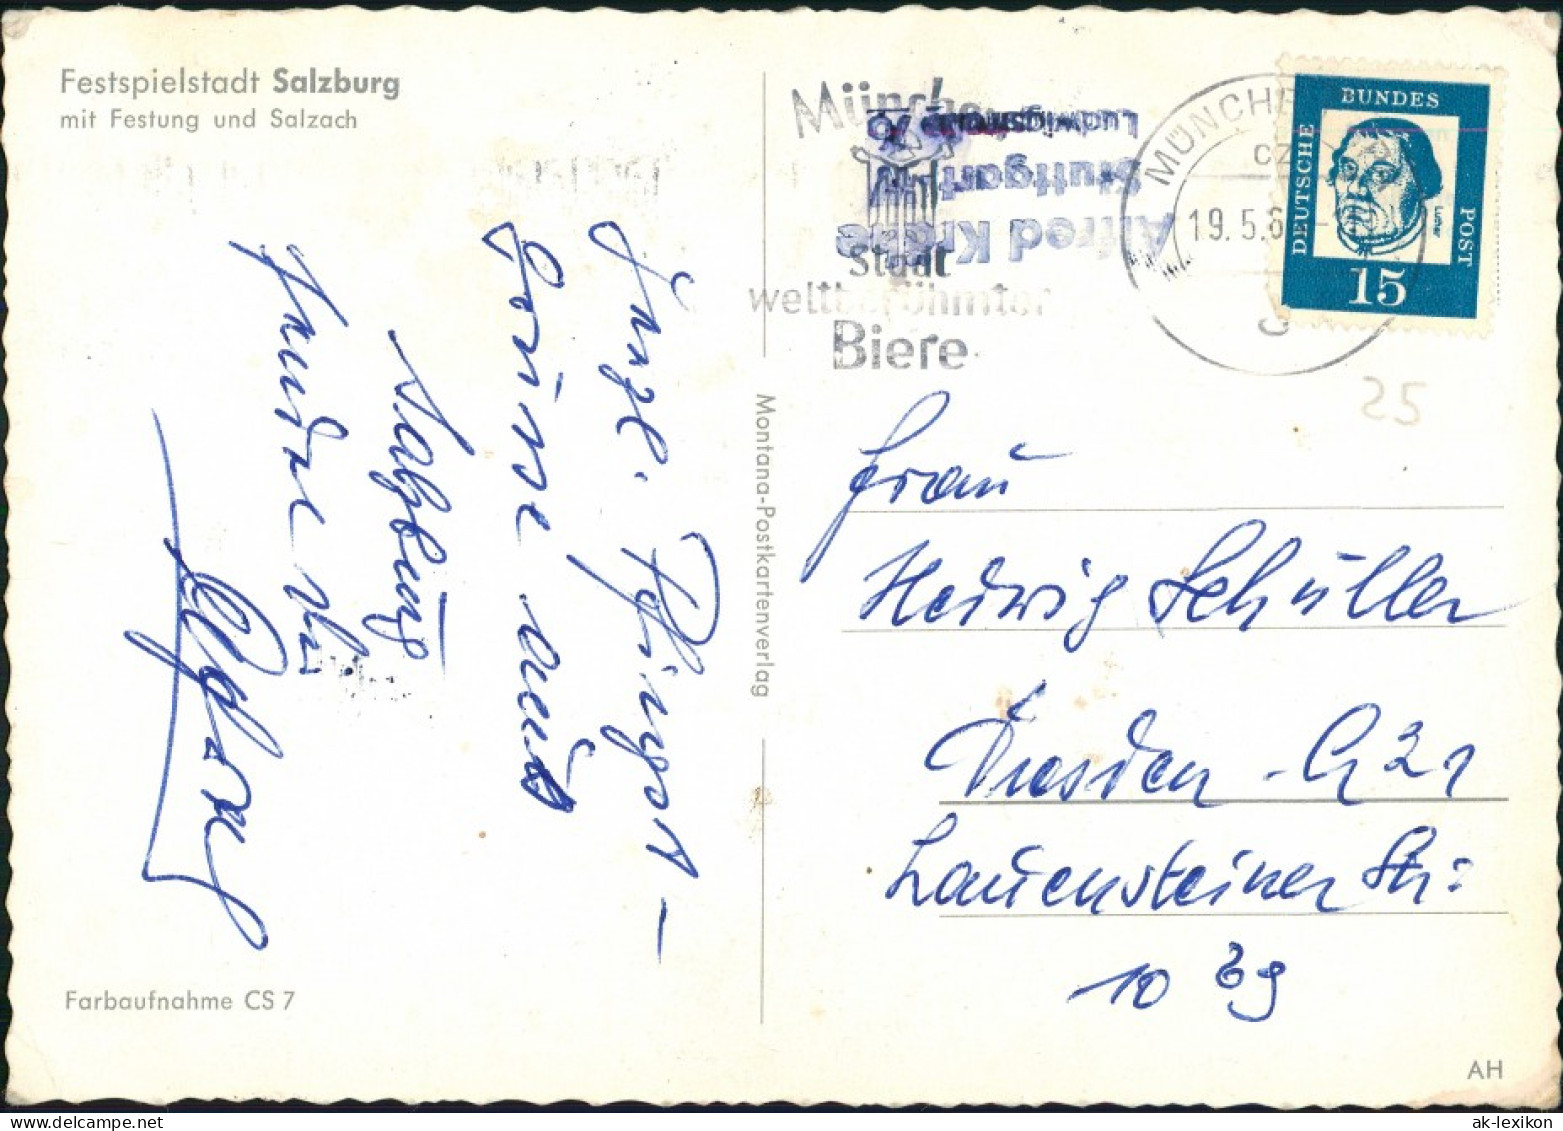 Festspielstadt Salzburg
mit Festung und Salzach
Herzl. Pfingst-
Grüsse aus
Salzburg
Farbaufnahme CS 7
Montana-Postkartenverlag
München
Stadt
weltberühmter
Biere
Alfred Krause
Stuttgart W
Ludwigstraße
MÜNCHE
19.5.6
DEUTSCHE
BUNDES
POST
15
25
Frau
Hedwig Schüller
Dresden - A 21
Lauensteiner Str.
10
AH
ak-lexikon